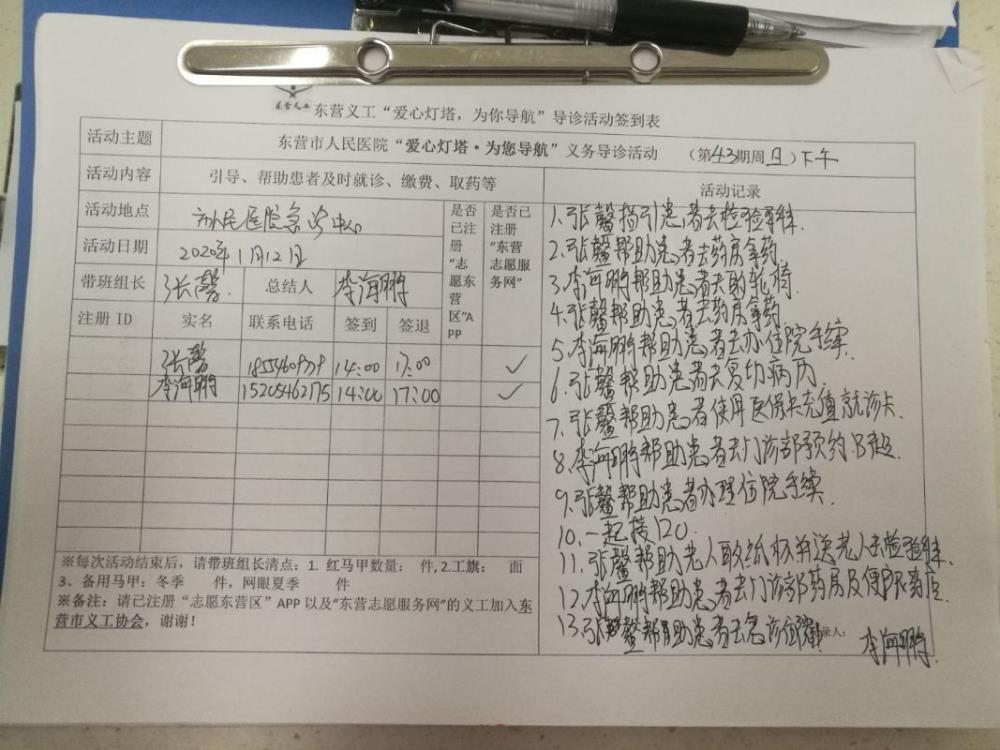 东营义工
东营义工“爱心灯塔，为你导航”导诊活动签到表
活动主题
东营市人民医院“爱心灯塔·为您导航”义务导诊活动 （第43期周日）下午
活动内容
引导、帮助患者及时就诊、缴费、取药等
活动记录
活动地点
市人民医院急诊中心
是否已注册“志愿东营区”APP
是否已注册“东营志愿服务网”
活动日期
2020年1月12日
带班组长 张馨 总结人 李海鹏
注册 ID 实名 联系电话 签到 签退
张馨 14:00 17:00 ✓
李海鹏 15205462175 14:00 17:00 ✓
1.张馨指引患者去检验科.
2.张馨帮助患者去药房拿药
3.李海鹏帮助患者去取轮椅
4.张馨帮助患者去药房拿药
5.李海鹏帮助患者去办住院手续.
6.张馨帮助患者去复印病历.
7.张馨帮助患者使用医保卡充值就诊卡.
8.李海鹏帮助患者去门诊部预约B超.
9.张馨帮助患者办理住院手续.
10.一起接120.
11.张馨帮助老人取纸杯并送老人去检验科.
12.李海鹏帮助患者去门诊部药房及便民药店
13.张馨帮助患者去急诊
录人： 李海鹏
※每次活动结束后，请带班组长清点：1. 红马甲数量： 件,2.工旗： 面
3、备用马甲：冬季 件，网眼夏季 件
※备注：请已注册“志愿东营区”APP 以及“东营志愿服务网”的义工加入东
营市义工协会，谢谢！